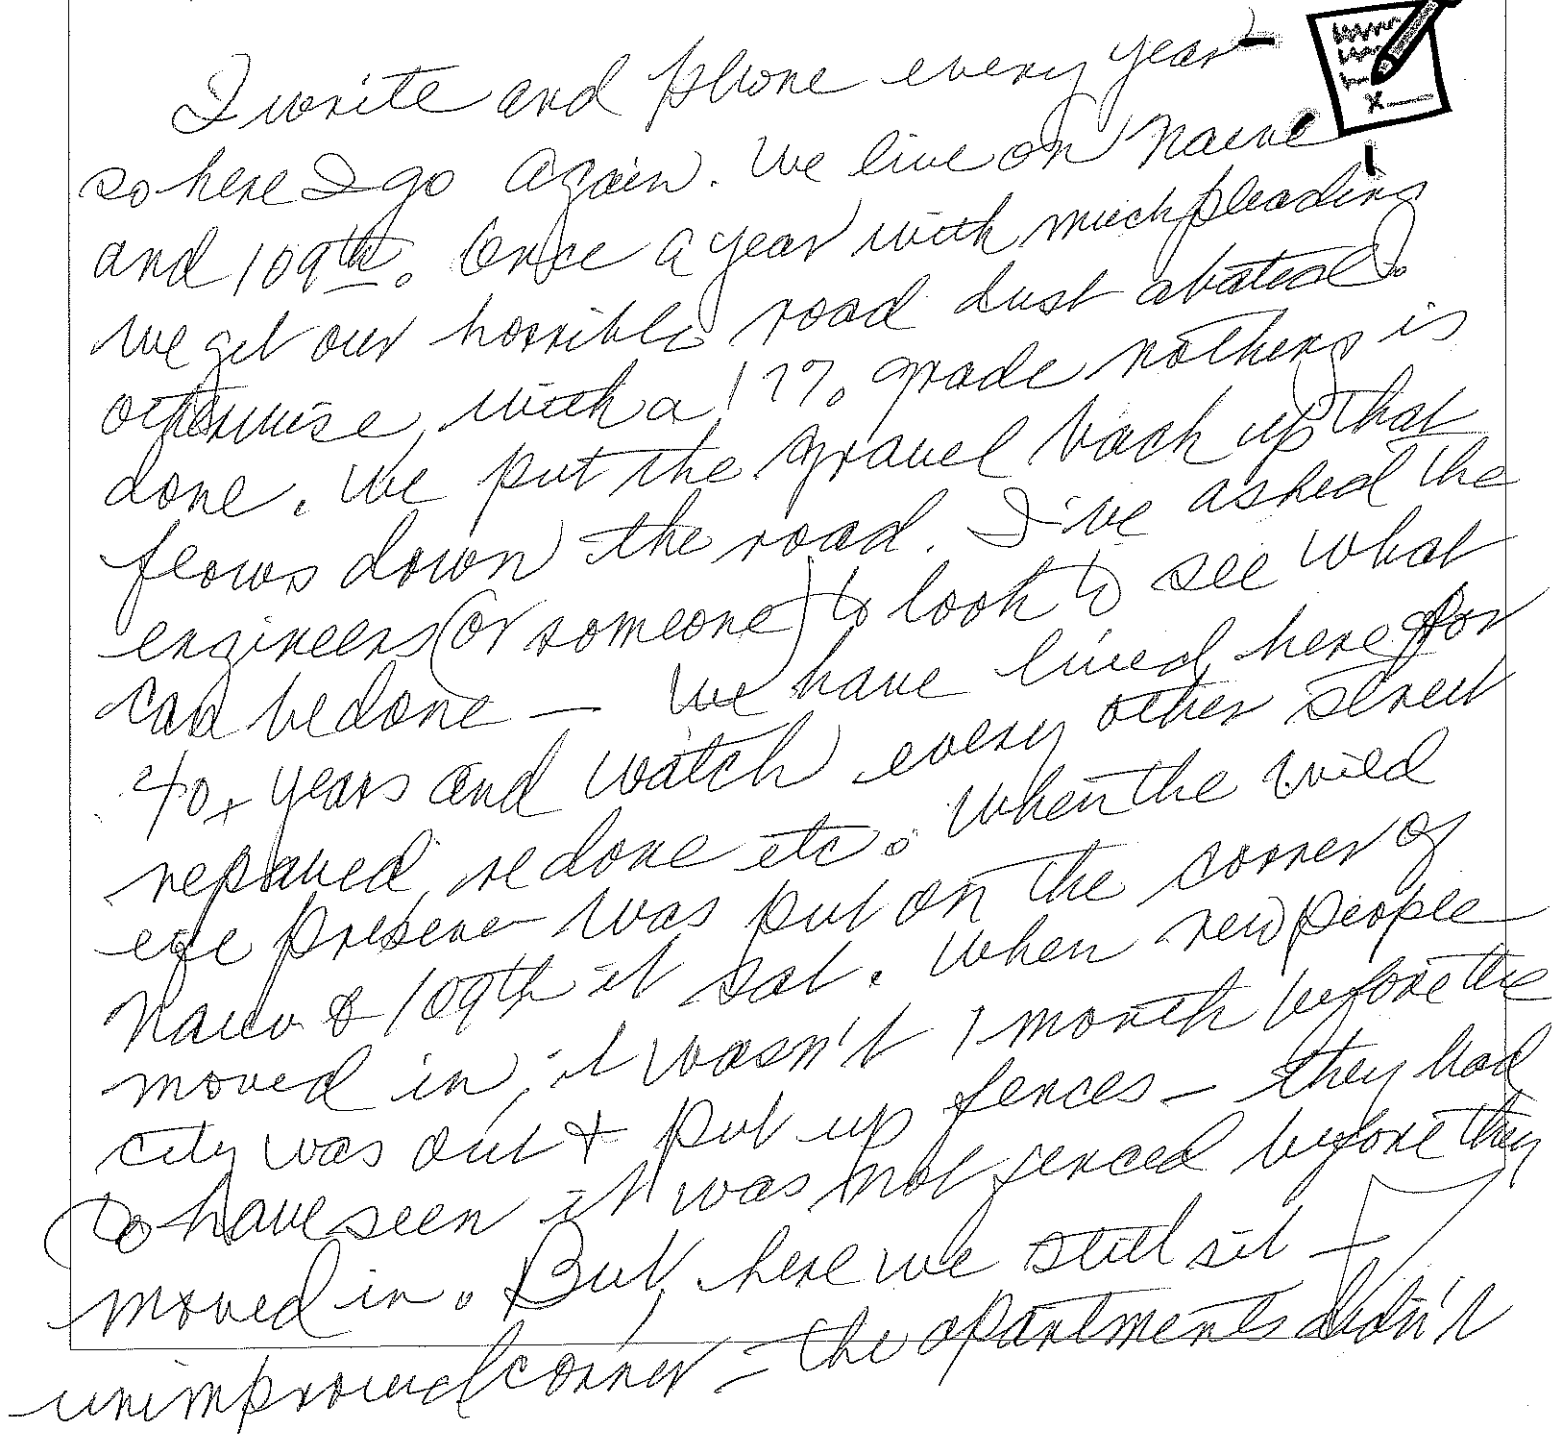 I write and phone every year
so here I go again. We live on Naeve
and 109th. Once a year with much pleading
we get our horrible road dust abated.
otherwise, with a 17% grade nothing is
done. We put the gravel back up that
flows down the road. I've asked the
engineers (or someone) to look to see what
can be done — We have lived here for
40+ years and watch every other street
repaved, redone etc. When the wild
life preserve was put on the corner of
Naeve & 109th it sat. When new people
moved in, it wasn't 1 month before the
city was out & put up fences — they had
to have seen it was not fenced before they
moved in. But, here we still sit —
unimproved corner — the apartments didn't